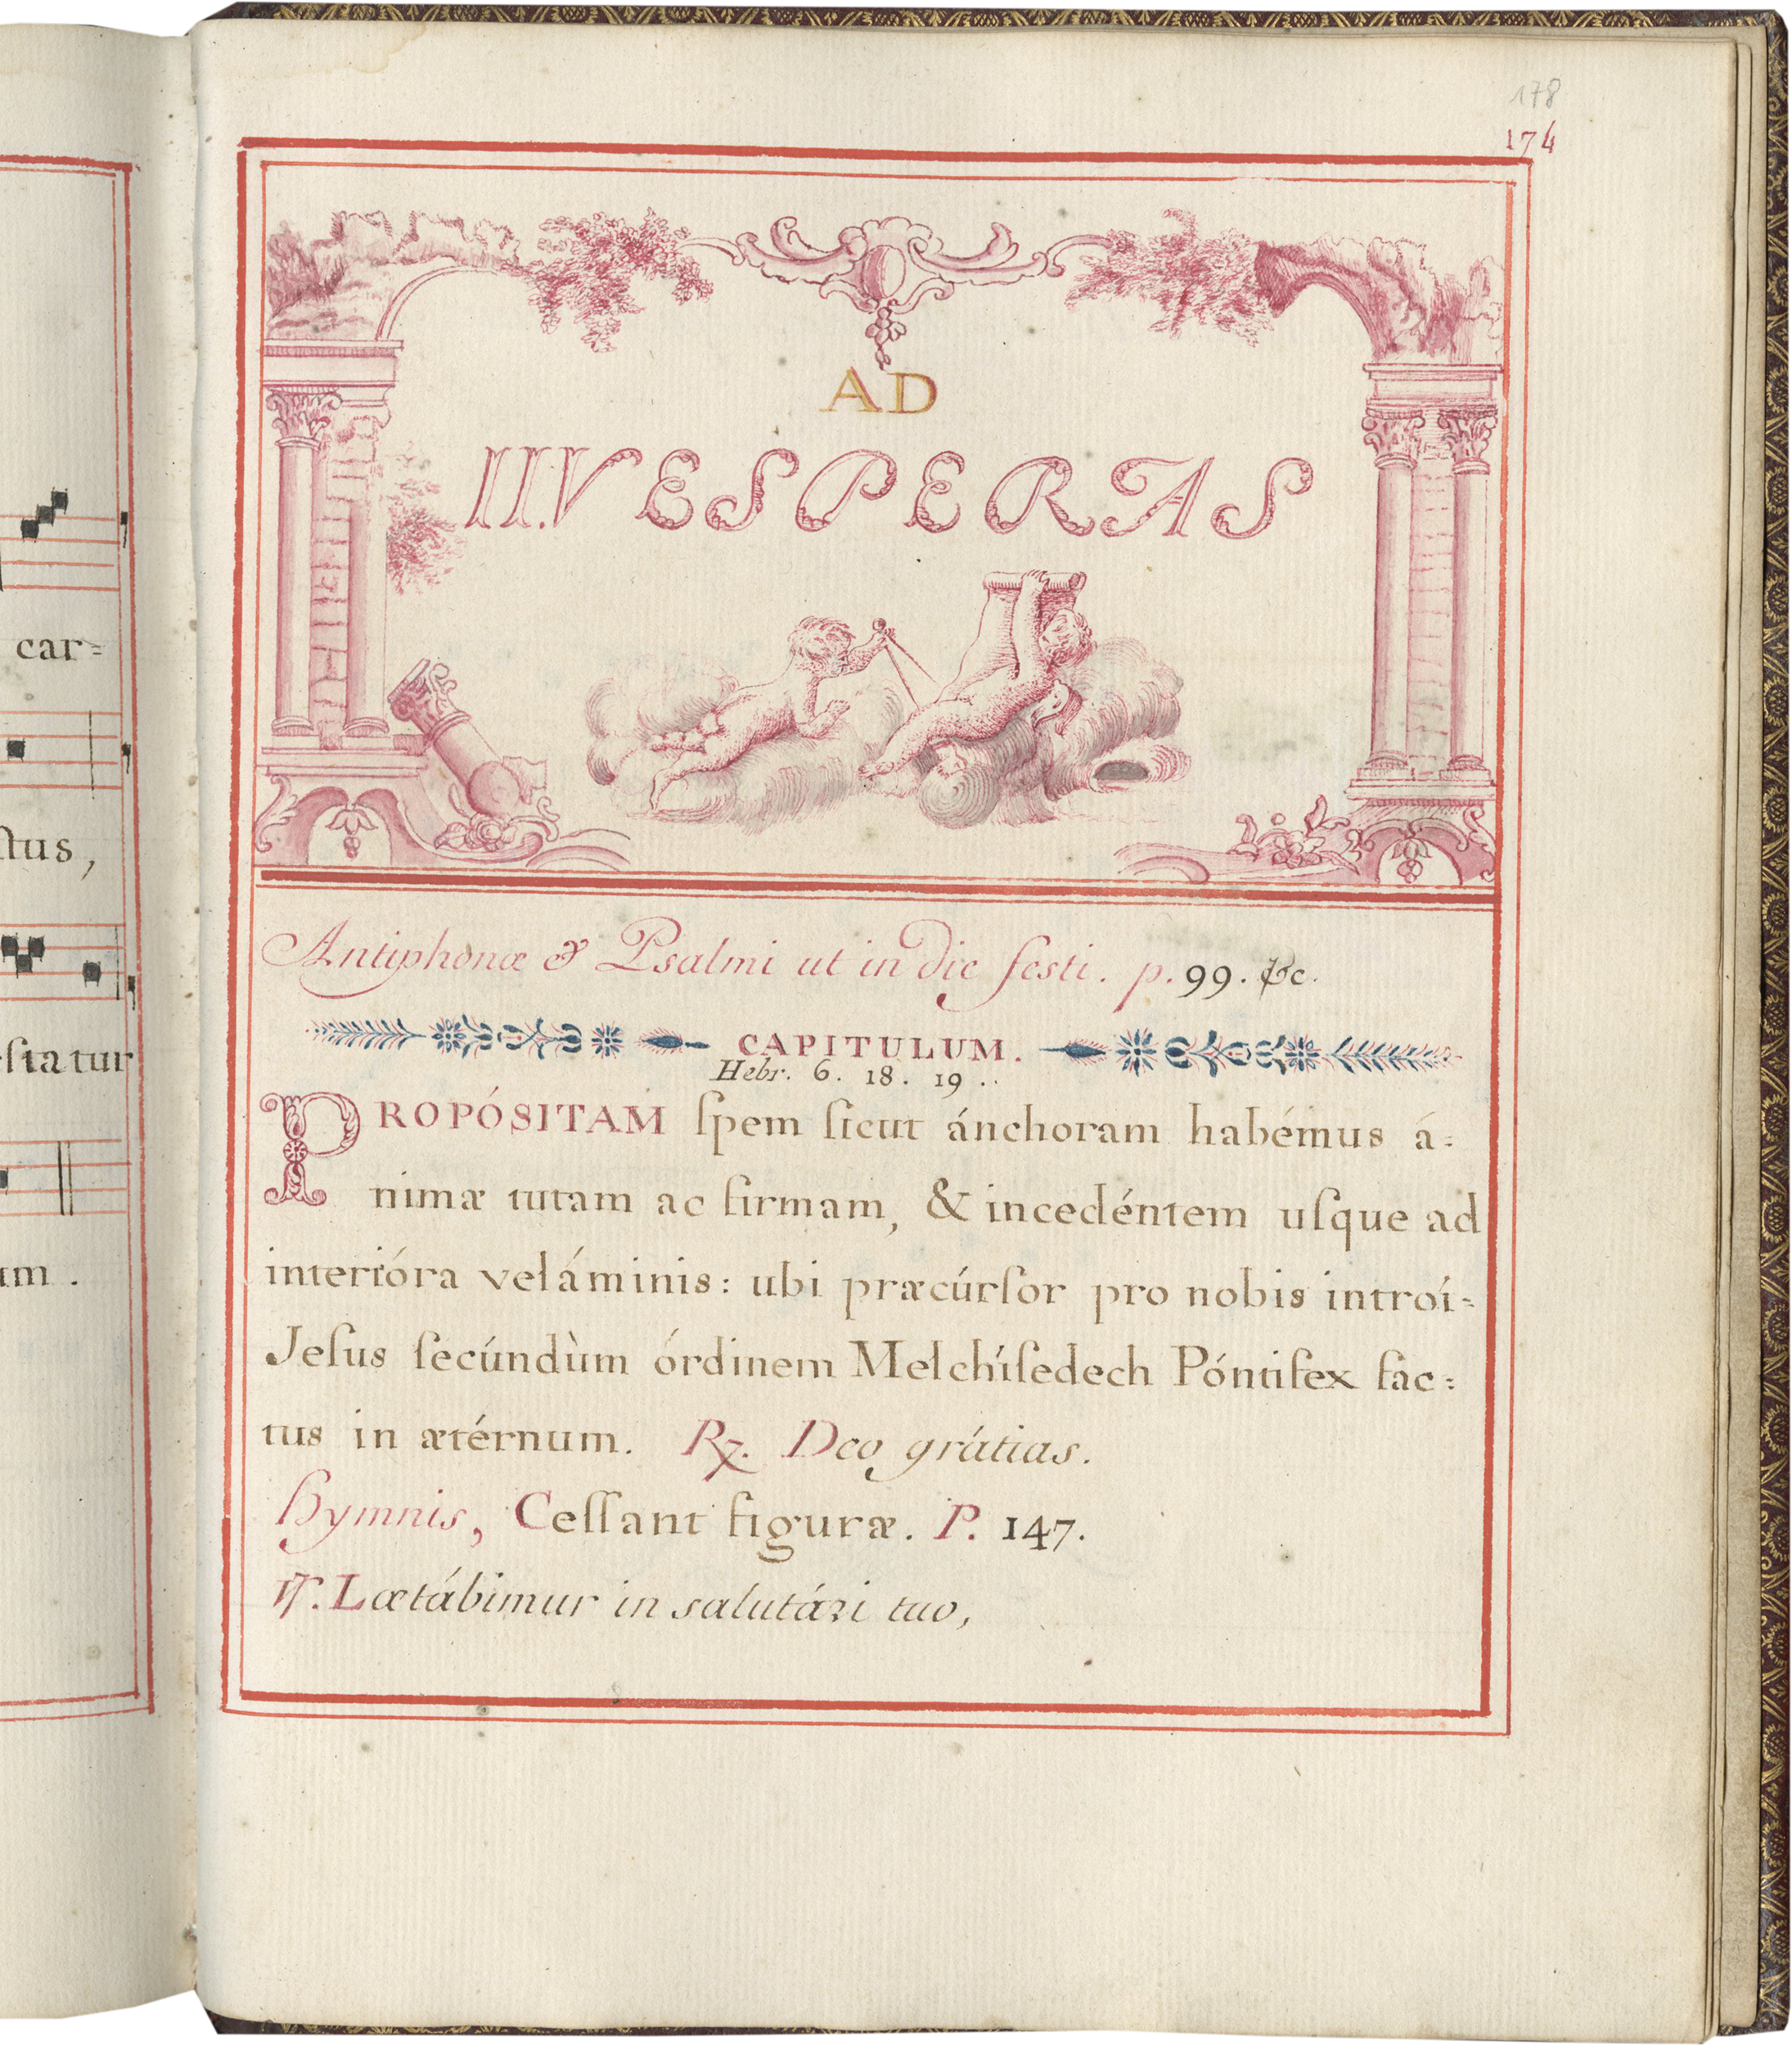 car=
ſtus,
ſtatur
um.
178
174
AD
II. VESPERAS
Antiphonæ & Psalmi ut in die festi. p. 99. &c.
CAPITULUM.
Hebr. 6. 18. 19..
PROPÓSITAM ſpem ſicut ánchoram habémus á=
nimæ tutam ac firmam, & incedéntem uſque ad
interióra veláminis: ubi præcúrſor pro nobis introí=
Jeſus ſecúndùm órdinem Melchíſedech Póntifex fac=
tus in ætérnum. ℟. Deo grátias.
Hymnis, Ceſſant figuræ. P. 147.
℣. Lætábimur in salutári tuo,